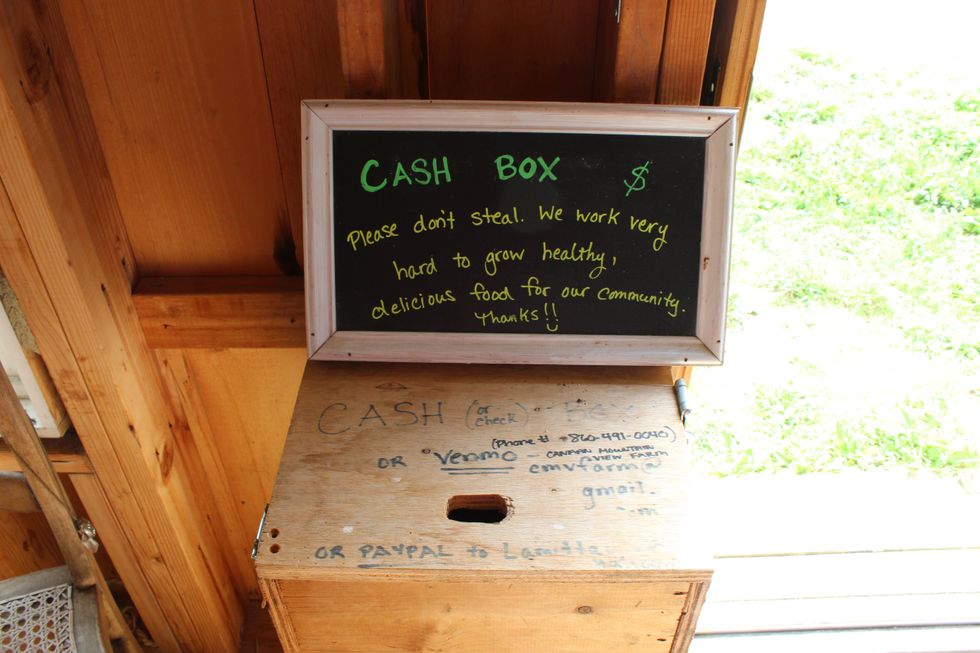 CASH BOX $
Please don't steal. We work very
hard to grow healthy,
delicious food for our community.
Thanks!!
CASH (or check) Box
(Phone # 860-491-0040)
OR Venmo - CANAAN MOUNTAIN
VIEW FARM
cmvfarm@
gmail.
OR PAYPAL to Lamitta